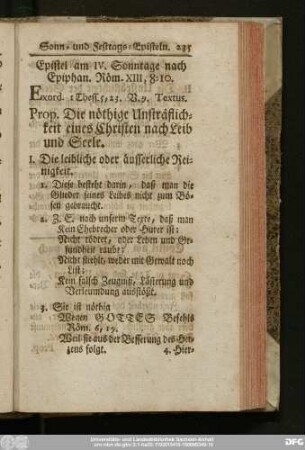 Sonn- und Festtags-Episteln. 235
Epistel am IV. Sonntage nach
Epiphan. Röm. XIII, 8-10.
Exord. 1 Thess. 5, 23. V. 9. Textus.
Prop. Die nöthige Unsträflich-
keit eines Christen nach Leib
und Seele.
I. Die leibliche oder äusserliche Rei-
nigkeit.
1. Diese besteht darin, daß man die
Glieder seines Leibes nicht zum Bö-
sen gebraucht.
2. Z. E. nach unserm Texte, daß man
Kein Ehebrecher oder Hurer ist:
Nicht tödtet, oder Leben und Ge-
sundheit raubt:
Nicht stiehlt, weder mit Gewalt noch
List:
Kein falsch Zeugniß, Lästerung und
Verleumdung ausstößt.
3. Sie ist nöthig
Wegen GOTTES Befehls
Röm. 6, 19.
Weil sie aus der Besserung des Her-
zens folgt. 4. Hier-
Universitäts- und Landesbibliothek Sachsen-Anhalt
DFG